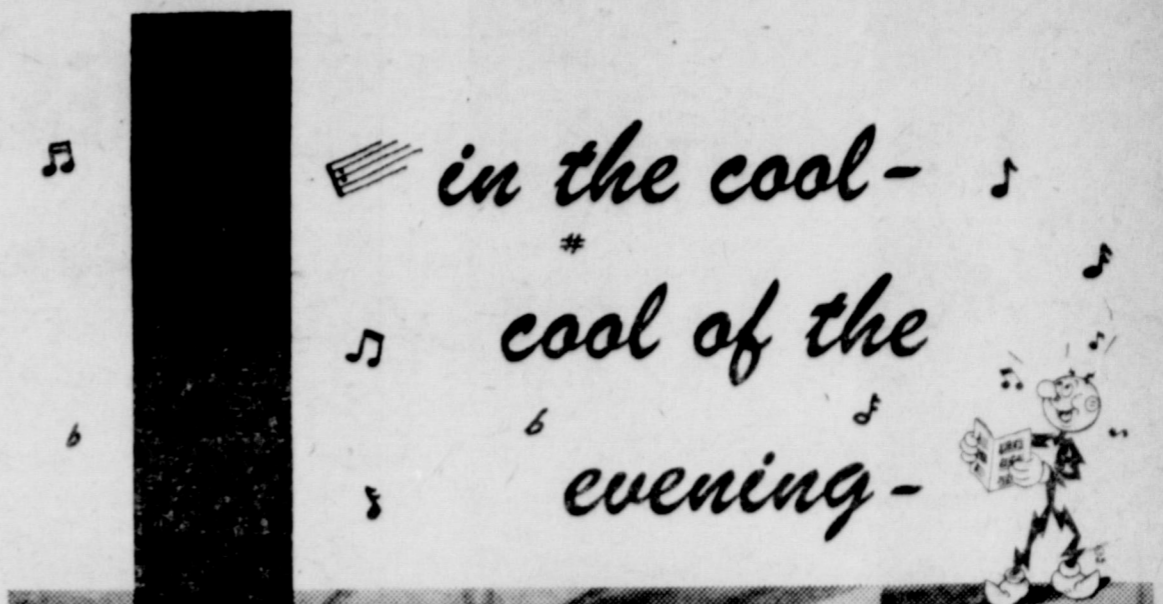 in the cool-
cool of the
evening-